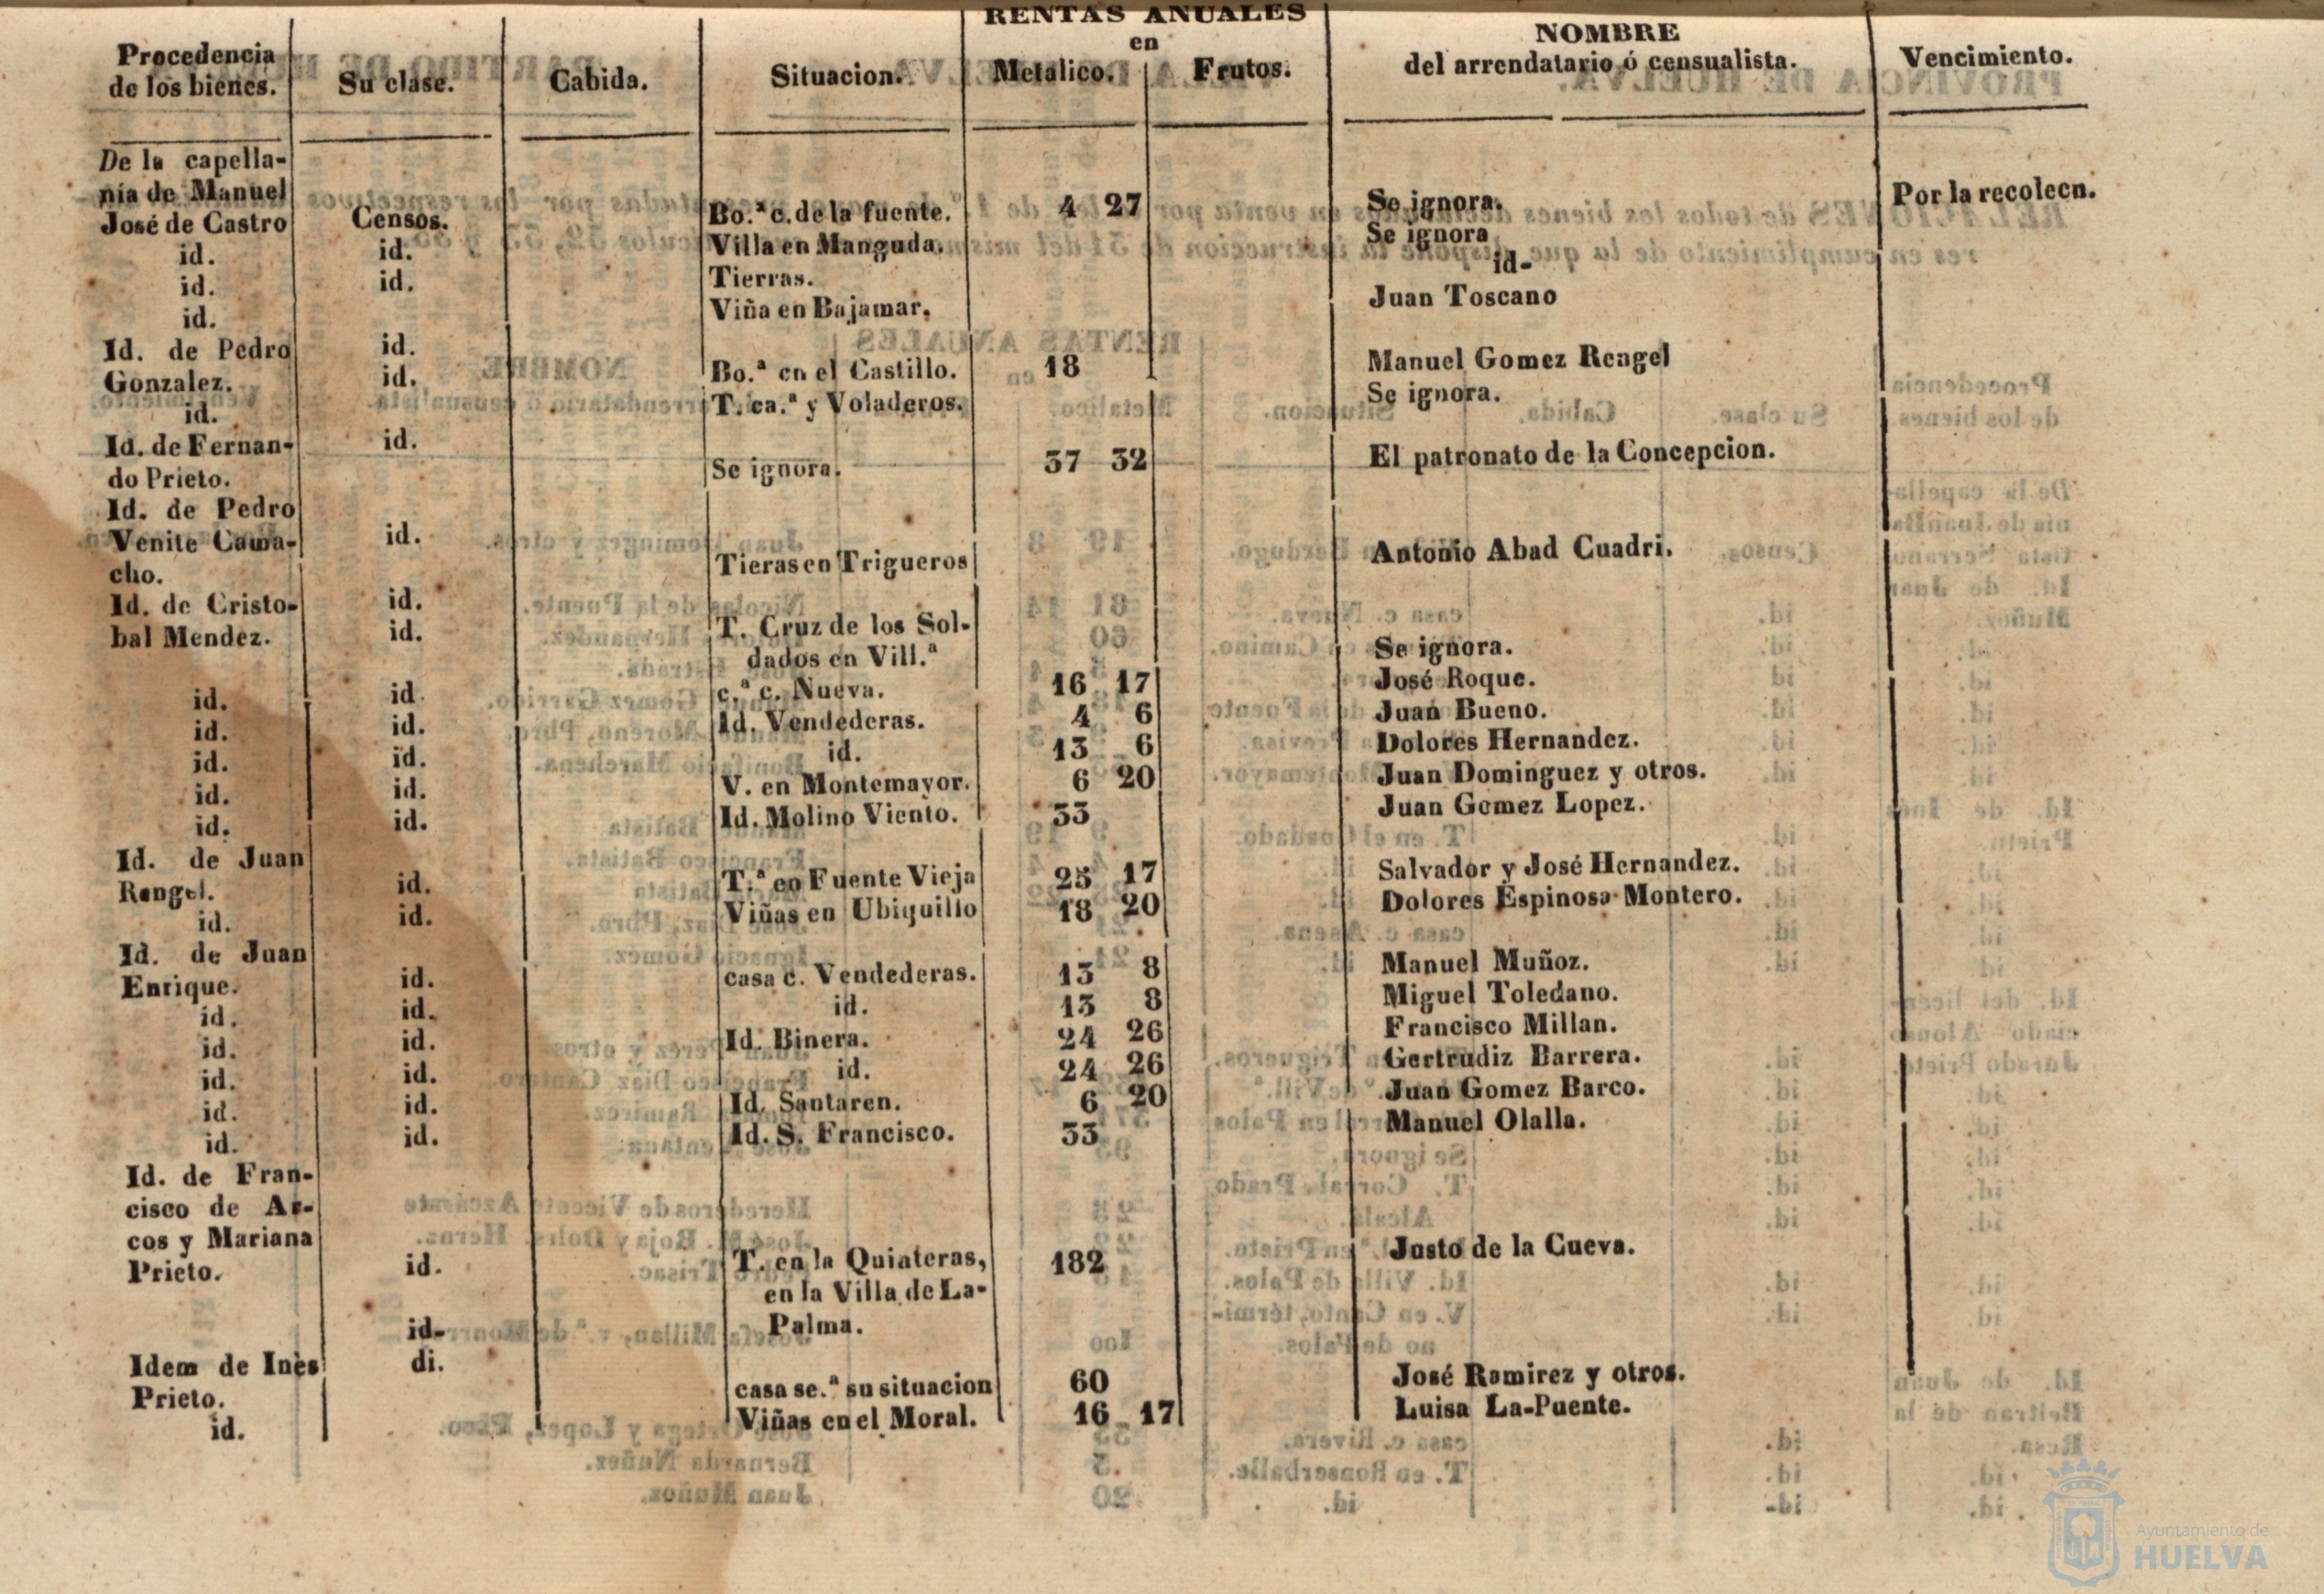 RENTAS ANUALES
Procedencia de los bienes. Su clase. Cabida. Situacion. en Metalico. Frutos. NOMBRE del arrendatario ó censualista. Vencimiento.
De la capella-
nía de Manuel
José de Castro Censos. Bo.ª c. de la fuente. 4 27 Se ignora. Por la recolecn.
id. id. Villa en Manguda. Se ignora
id. id. Tierras. id-
id. Viña en Bajamar. Juan Toscano
Id. de Pedro id.
Gonzalez. id. Bo.ª en el Castillo. 18 Manuel Gomez Rengel
id. T. ca.ª y Voladeros. Se ignora.
Id. de Fernan- id.
do Prieto. Se ignora. 37 32 El patronato de la Concepcion.
Id. de Pedro
Venite Cama- id.
cho. Tieras en Trigueros Antonio Abad Cuadri.
Id. de Cristo- id.
bal Mendez. id. T. Cruz de los Sol-
dados en Vill.ª Se ignora.
id. id. c.ª c. Nueva. 16 17 José Roque.
id. id. Id. Vendederas. 4 6 Juan Bueno.
id. id. id. 13 6 Dolores Hernandez.
id. id. V. en Montemayor. 6 20 Juan Dominguez y otros.
id. id. Id. Molino Viento. 33 Juan Gomez Lopez.
Id. de Juan
Rengel. id. T.ª en Fuente Vieja 25 17 Salvador y José Hernandez.
id. id. Viñas en Ubiquillo 18 20 Dolores Espinosa Montero.
Id. de Juan
Enrique. id. casa c. Vendederas. 13 8 Manuel Muñoz.
id. id. id. 13 8 Miguel Toledano.
id. id. Id. Binera. 24 26 Francisco Millan.
id. id. id. 24 26 Gertrudiz Barrera.
id. id. Id. Santaren. 6 20 Juan Gomez Barco.
id. id. Id. S. Francisco. 33 Manuel Olalla.
Id. de Fran-
cisco de Ar-
cos y Mariana
Prieto. id. T. en la Quiateras, 182 Justo de la Cueva.
en la Villa de La-
id- Palma.
Idem de Inès di.
Prieto. casa se.ª su situacion 60 José Ramirez y otros.
id. Viñas en el Moral. 16 17 Luisa La-Puente.
Ayuntamiento de
HUELVA